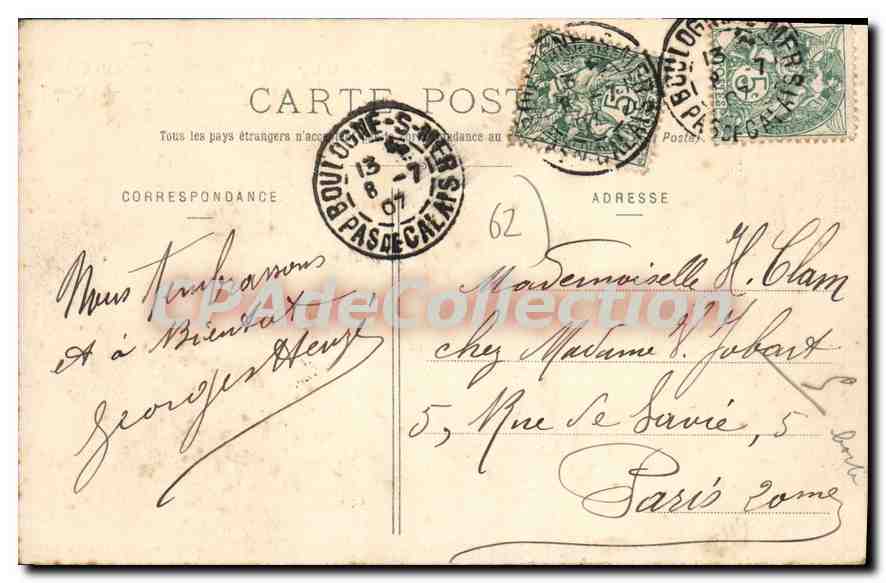 CARTE POST
Tous les pays étrangers n'acc
ndance au
Poste).
CORRESPONDANCE
ADRESSE
BOULOGNE-S-MER
13
8 -7
07
PAS DE CALAIS
BOULOGNE-S-MER
13
8 -7
07
PAS DE CALAIS
62
Nous t'embrassons
et à Bientot
Georges Henry
Mademoiselle H. Clam
chez Madame V. Jobart
5, Rue de Savie, 5
Paris 20me
CPAdeCollection